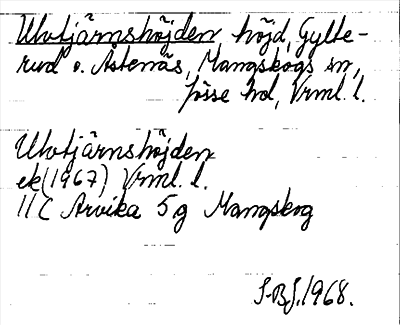 Ulvtjärnshöjden, höjd, Gylte-
rud o. Åstenäs, Mangskogs sn,
Jösse hd, Vrml. l.
Ulvtjärnshöjden
ek (1967) Vrml. l.
11 C Arvika 5 g Mangskog
S-BJ. 1968.